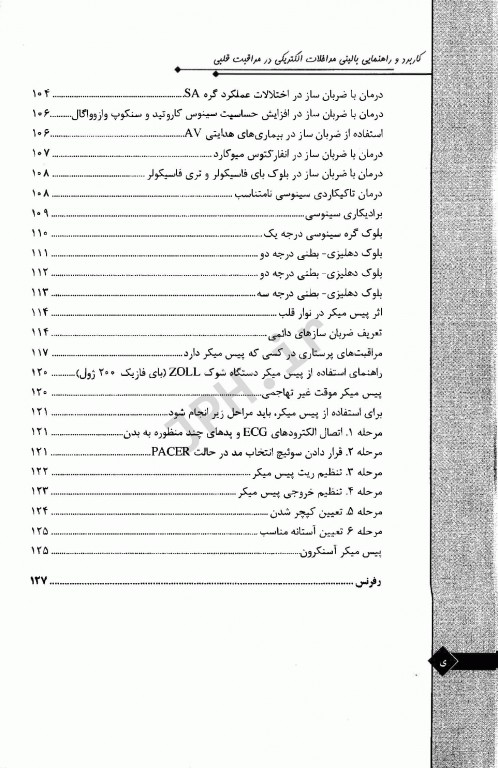 کاربرد و راهنمایی بالینی مداخلات الکتریکی در مراقبت قلبی
درمان با ضربان ساز در اختلالات عملکرد گره SA ........ ۱۰۴
درمان با ضربان ساز در افزایش حساسیت سینوس کاروتید و سنکوپ وازوواگال ........ ۱۰۶
استفاده از ضربان ساز در بیماری‌های هدایتی AV ........ ۱۰۶
درمان با ضربان ساز در انفارکتوس میوکارد ........ ۱۰۷
درمان با ضربان ساز در بلوک بای فاسیکولر و تری فاسیکولر ........ ۱۰۸
درمان تاکیکاردی سینوسی نامتناسب ........ ۱۰۸
برادیکاری سینوسی ........ ۱۰۹
بلوک گره سینوسی درجه یک ........ ۱۱۰
بلوک دهلیزی- بطنی درجه دو ........ ۱۱۱
بلوک دهلیزی- بطنی درجه دو ........ ۱۱۲
بلوک دهلیزی- بطنی درجه سه ........ ۱۱۳
اثر پیس میکر در نوار قلب ........ ۱۱۴
تعریف ضربان سازهای دائمی ........ ۱۱۴
مراقبت‌های پرستاری در کسی که پیس میکر دارد ........ ۱۱۷
راهنمای استفاده از پیس میکر دستگاه شوک ZOLL (بای فازیک ۲۰۰ ژول) ........ ۱۲۰
پیس میکر موقت غیر تهاجمی ........ ۱۲۰
برای استفاده از پیس میکر، باید مراحل زیر انجام شود ........ ۱۲۱
مرحله ۱. اتصال الکترودهای ECG و پدهای چند منظوره به بدن ........ ۱۲۱
مرحله ۲. قرار دادن سوئیچ انتخاب مد در حالت PACER ........ ۱۲۱
مرحله ۳. تنظیم ریت پیس میکر ........ ۱۲۲
مرحله ۴. تنظیم خروجی پیس میکر ........ ۱۲۳
مرحله ۵. تعیین کپچر شدن ........ ۱۲۴
مرحله ۶ تعیین آستانه مناسب ........ ۱۲۵
پیس میکر آسنکرون ........ ۱۲۵
رفرنس ........ ۱۲۷
ی
JPH.ir